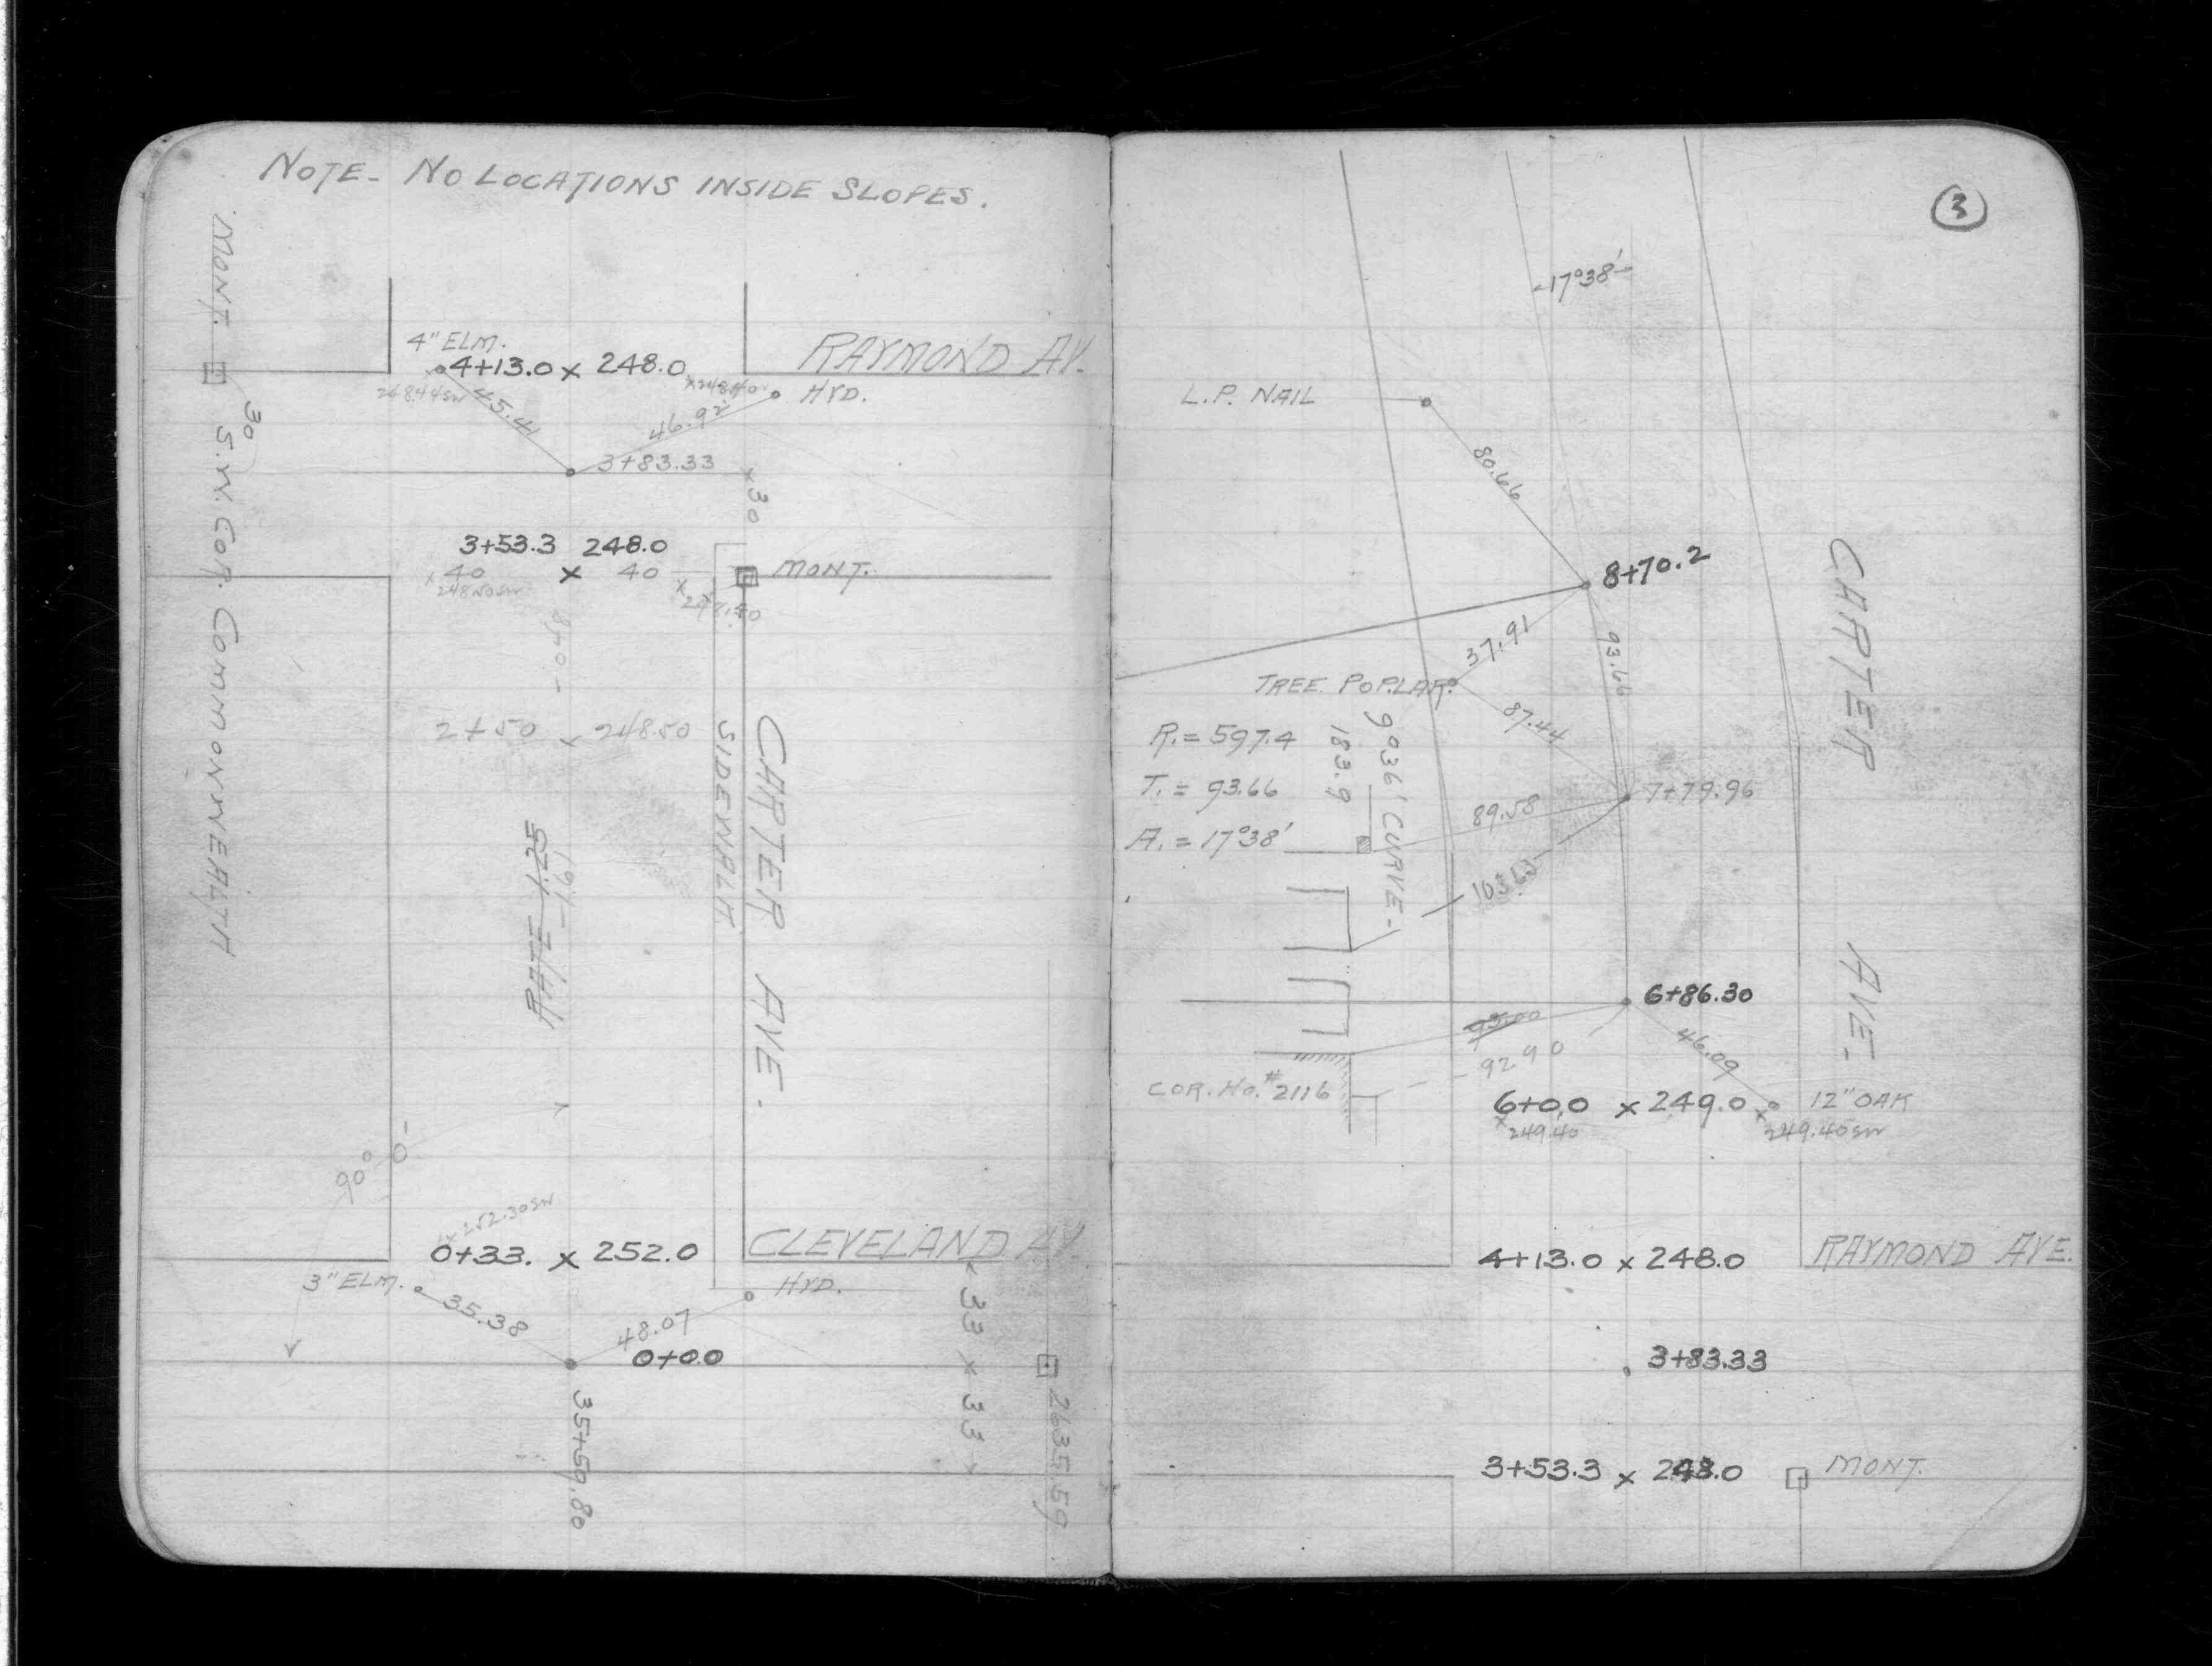 NOTE- NO LOCATIONS INSIDE SLOPES.
MONT.
30
S.W. COR. COMMONWEALTH
4" ELM.
4+13.0 x 248.0
x 248.40
RAYMOND AV.
HYD.
248.44 SW
45.41
46.92
3+83.33
x 30
3+53.3 248.0
x 40 x 40
MONT.
248.50 SW
2+50 x 248.50
SIDEWALK
CARTER AVE.
90°
x 252.30 SW
0+33. x 252.0
CLEVELAND AV.
3" ELM.
HYD.
35.38
48.07
0+0.0
x 33 x 33 x
35+59.80
2635.59
3
17°38'
L.P. NAIL
80.66
8+70.2
37.91
93.66
TREE POPLAR.
87.44
CARTER AVE.
R. = 597.4
T. = 93.66
A. = 17°38'
183.9
9°36' CURVE-
7+79.96
89.58
103.63
6+86.30
93.00
92.90
46.09
COR. HO. #2116
6+0.0 x 249.0
12" OAK
x 249.40
x 249.40 SW
4+13.0 x 248.0
RAYMOND AVE.
3+83.33
3+53.3 x 248.0
MONT.